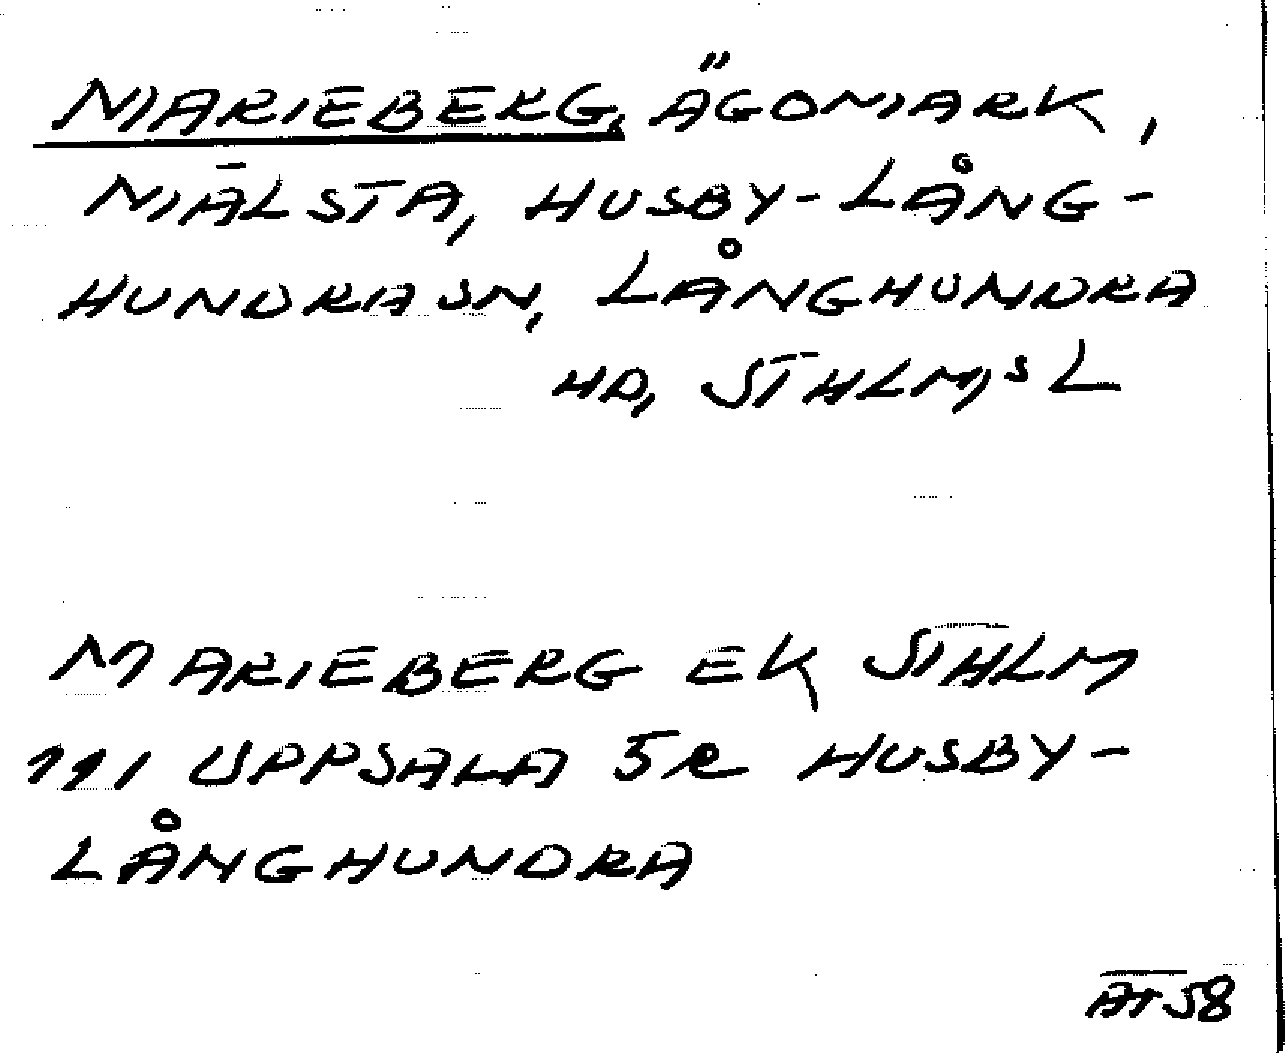 MARIEBERG, ÄGOMARK,
MÄLSTA, HUSBY-LÅNG-
HUNDRA SN, LÅNGHUNDRA
HD, STHLM,S L
MARIEBERG EK STHLM
111 UPPSALA 5R HUSBY-
LÅNGHUNDRA
AT 58